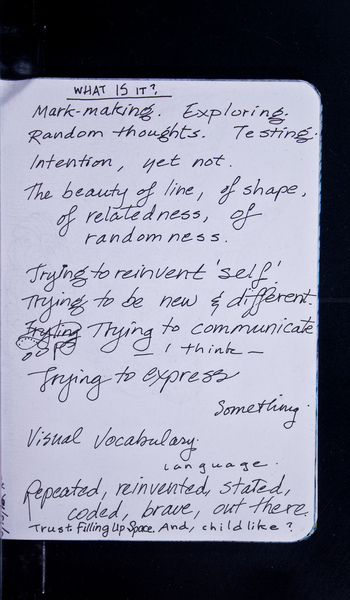 WHAT IS IT?
Mark-making. Exploring.
Random thoughts. Testing.
Intention, yet not.
The beauty of line, of shape,
of relatedness, of
randomness.
Trying to reinvent 'self'.
Trying to be new & different.
Trying Trying to communicate
oops — I think —
Trying to express
Something.
Visual Vocabulary.
Language.
Repeated, reinvented, stated,
coded, brave, out there.
Trust. Filling Up Space. And, childlike?